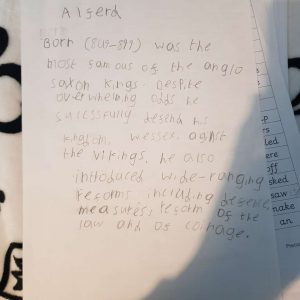 Alferd
Born (849-899) was the
most famous of the anglo
saxon kings. Despite
overwheming odds he
successfully defend his
kingdom, wessex, aganst
the vikings. he also
introduced wide-ranging
reforms including defence
measures, reform of the
law and of coinage.
led
ere
off
sked
saw
make
an